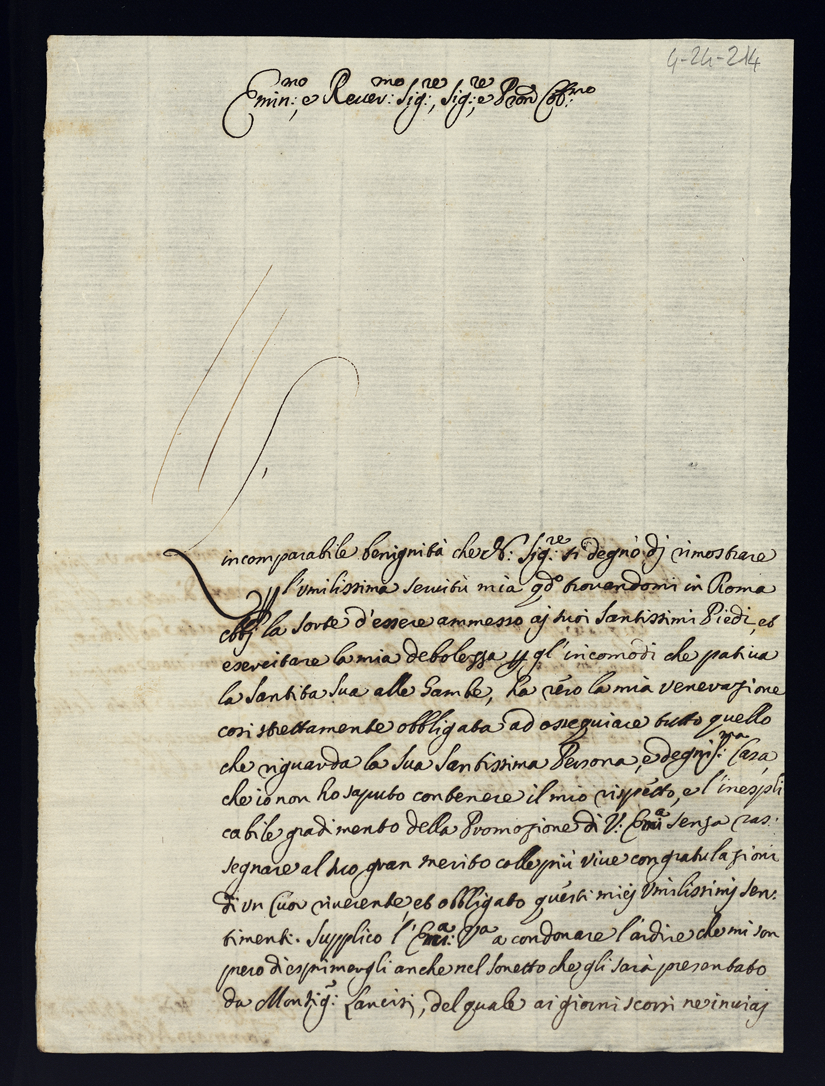 4-24-214
Emin:mo, e Rever:mo Sig:re, Sig:re, e Pron Colmo:
L'incomparabile benignità che N: Sig:re si degnò dj rimostrare
all'umilissima servitù mia qdo trovandomi in Roma
ebbj la sorte d'essere ammesso aj suoi Santissimi Piedi, et
esercitare la mia debolezza p gl'incomodi che pativa
la Santità Sua alle Gambe, ha reso la mia venerazione
così strettamente obbligata ad ossequiare tutto quello
che riguarda la Sua Santissima Persona, e degnis:ma Casa,
che io non ho saputo contenere il mio rispetto, e l'inespli
cabile gradimento della Promozione di V: Emza senza ras:
segnare al suo gran merito colle più vive congratulazioni
di un Cuor riverente, et obbligato questi miej umilissimj sen:
timenti. Supplico l'Em:za Va a condonare l'ardire che mi son
preso di esprimergli anche nel Sonetto che gli sarà presentato
da Monsig:r Lancisi, del quale ai giorni scorsi ne inviaj